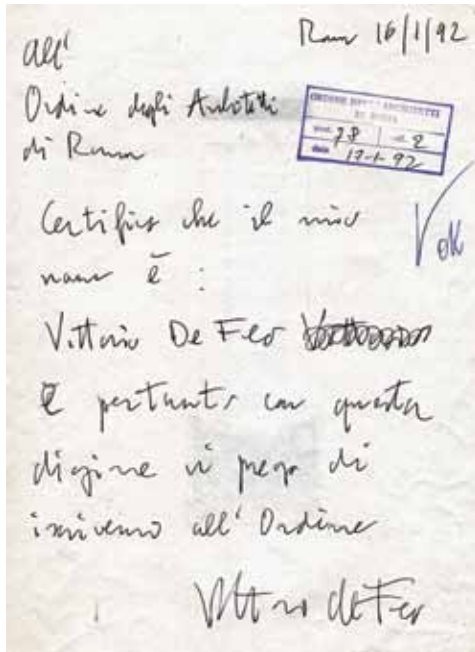 Roma 16/1/92
all'
Ordine degli Architetti
di Roma
ORDINE DEGLI ARCHITETTI
DI ROMA
prot. 78 cat. 2
data 17-1-92
Certifico che il mio
nome è :
Vittorio De Feo
E pertanto con questa
dizione vi prego di
iscrivermi all'Ordine
Vittorio De Feo
ok